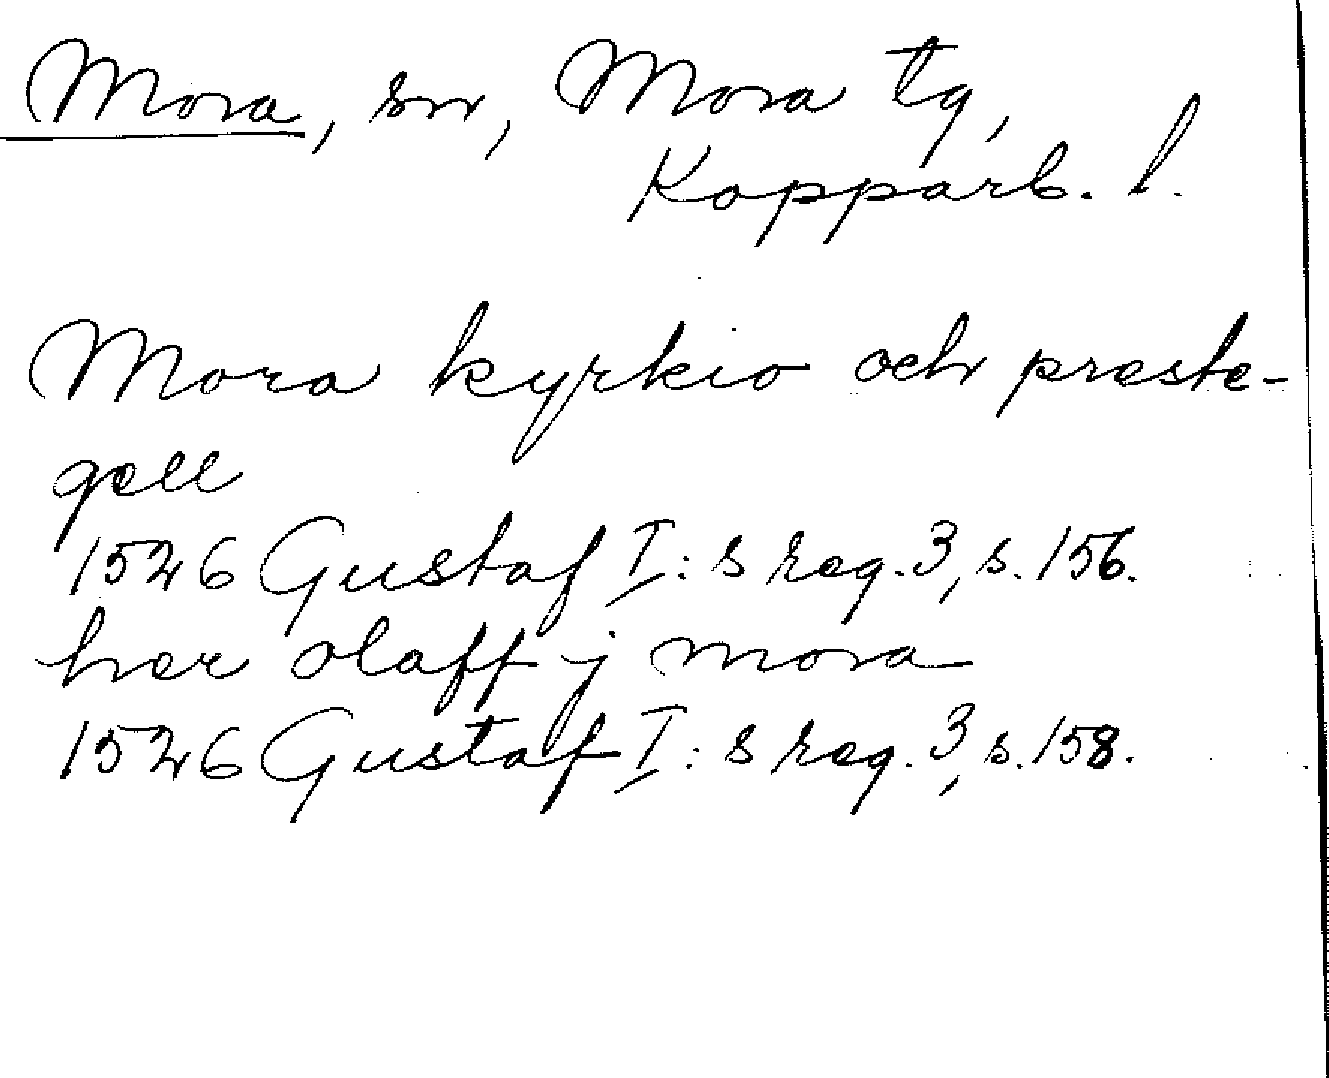 Mora, sn, Mora tg,
Kopparb. l.
Mora kyrkio och preste-
gell
1526 Gustaf I:s reg. 3, s. 156.
her olaff j mora
1526 Gustaf I:s reg. 3, s. 158.